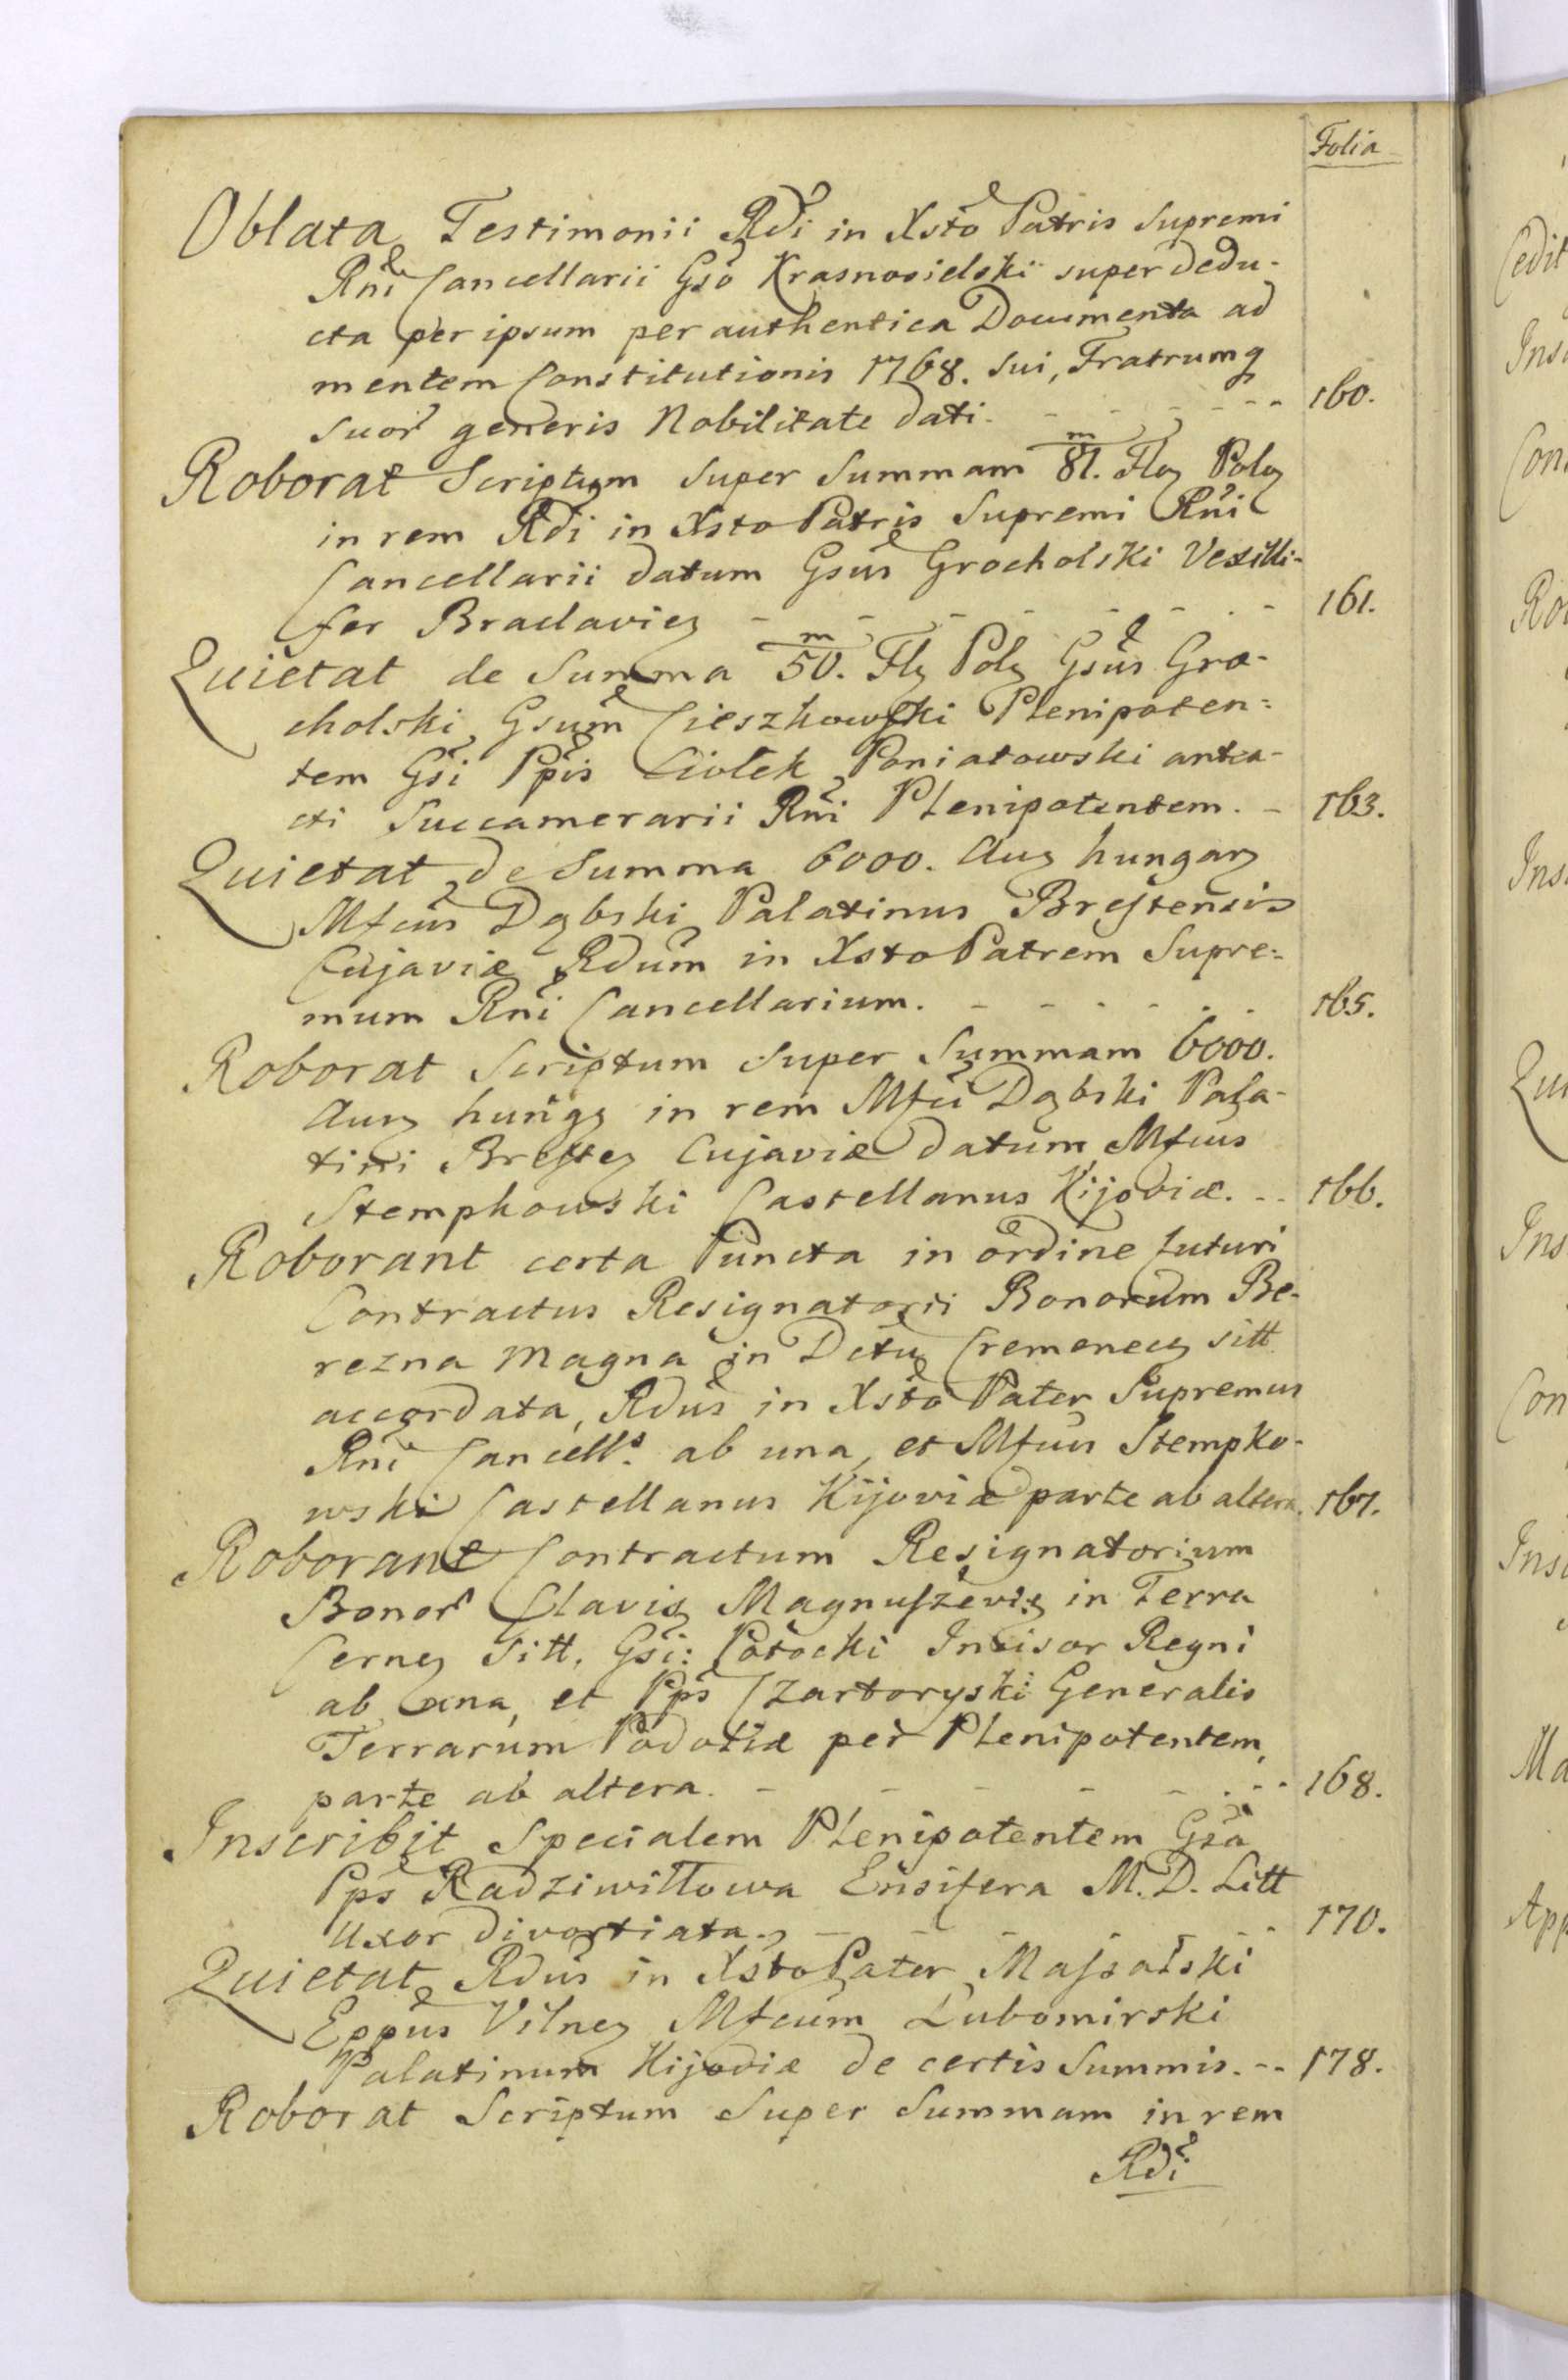 Folia
Oblata Testimonii Rdi in Xsto Patris Supremi
Rni Cancellarii Gso Krasnosielski super dedu-
cta per ipsum per authentica Documenta ad
mentem Constitutionis 1768. sui, Fratrumq
suor generis Nobilitate dati. - - - - - - 160.
Roborat Scriptum super Summam 81. m Flor Polor
in rem Rdi in Xsto Patris Supremi Rni
Cancellarii datum Gsus Grocholski Vexilli-
fer Braclavien - - - - - - - - 161.
Quietat de Summa 50. m Flr Polr Gsus Gro-
cholski Gsum Cieszkowski Plenipoten=
tem Gsi Ppis Ciołek Poniatowski antea-
cti Succamerarii Rni Plenipotentem. - 163.
Quietat de Summa 6000. Aur hungar
Mfcus Dąbski Palatinus Brestensis
Cujaviæ Rdum in Xsto Patrem Supre=
mum Rni Cancellarium. - - - - - - 165.
Roborat Scriptum super Summam 6000.
Aur hungr in rem Mfci Dąbski Pala-
tini Bresten Cujaviæ datum Mfcus
Stempkowski Castellanus Kijoviæ. - - 166.
Roborant certa Puncta in ordine futuri
Contractus Resignatorii Bonorum Be-
rezna Magna in Dctu Cremenecen sitt
accordata, Rdus in Xsto Pater Supremus
Rni Cancells. ab una, et Mfcus Stempko-
wski Castellanus Kijoviæ parte ab altera. 167.
Roborant Contractum Resignatorium
Bonor Clavis Magnuszevien in Terra
Cernen Sitt. Gsi: Potocki Incisor Regni
ab una, et Pps Czartoryski Generalis
Terrarum Podoliæ per Plenipotentem,
parte ab altera. - - - - - - - 168.
Inscribit Specialem Plenipotentem Gsa
Pps Radziwiłłowa Ensifera M. D. Litt
Uxor divortiata. - - - - - 170.
Quietat Rdus in Xsto Pater Massalski
Eppus Vilnen Mfcum Lubomirski
Palatinum Kijoviæ de certis Summis. - - 178.
Roborat Scriptum super Summam in rem
Rdi